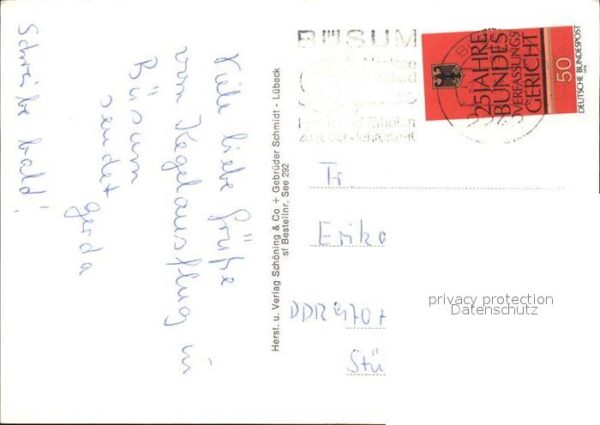 Viele liebe Grüße
vom Kegelausflug in
Büsum
sendet
Gerda
Schreibe bald!
Herst. u. Verlag Schöning & Co + Gebrüder Schmidt - Lübeck
sf Bestellnr. See 292
BÜSUM
25 JAHRE
BUNDES
VERFASSUNGS
GERICHT
50
DEUTSCHE BUNDESPOST
Fr.
Erika
DDR 9707
Stü
privacy protection
Datenschutz